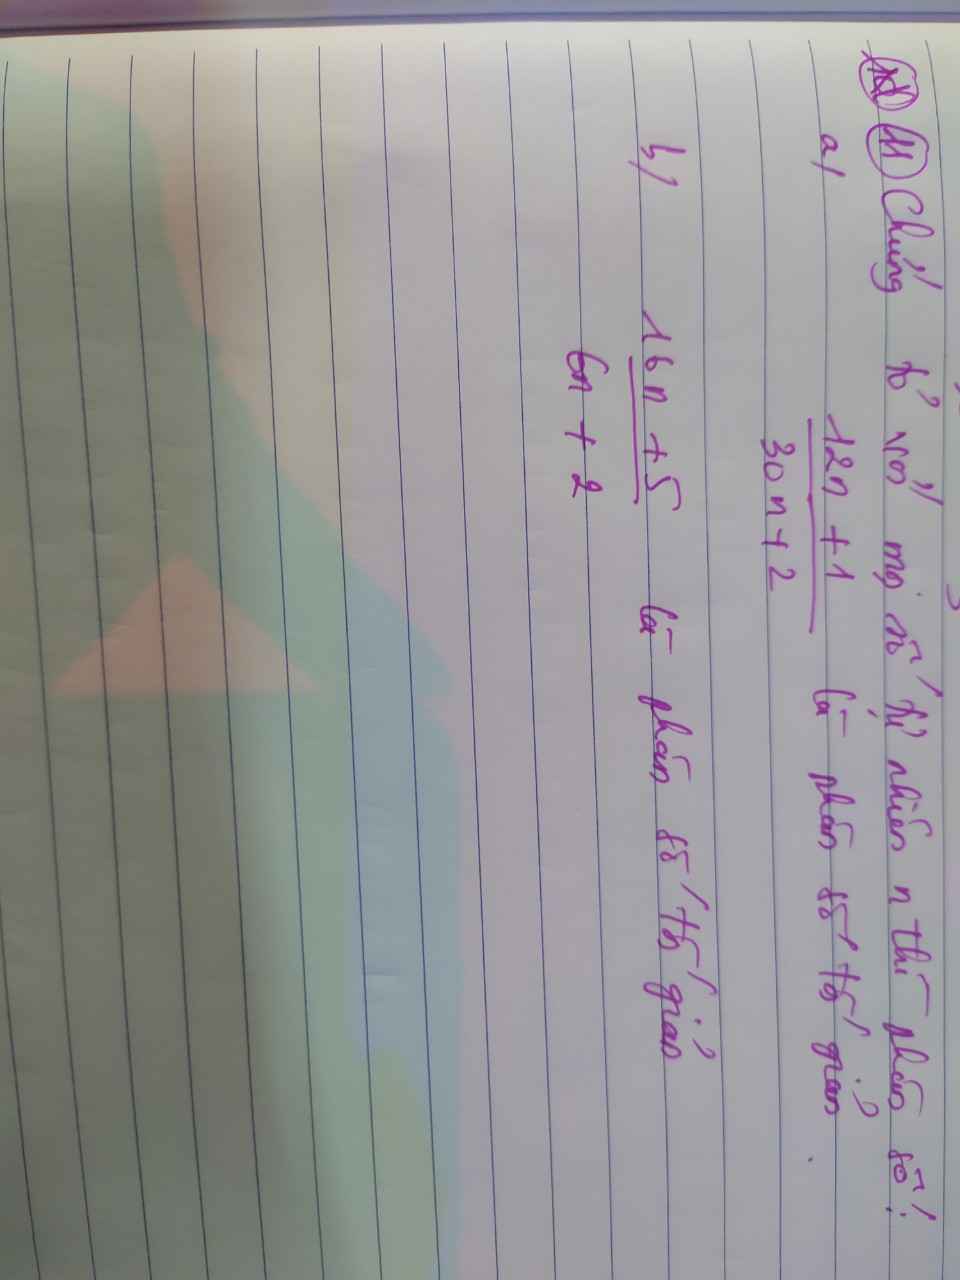 11 Chứng tỏ với mọi số tự nhiên n thì phân số:
a/ 12n + 1 là phân số tối giản.
30n + 2
b/ 16n + 5 là phân số tối giản
6n + 2